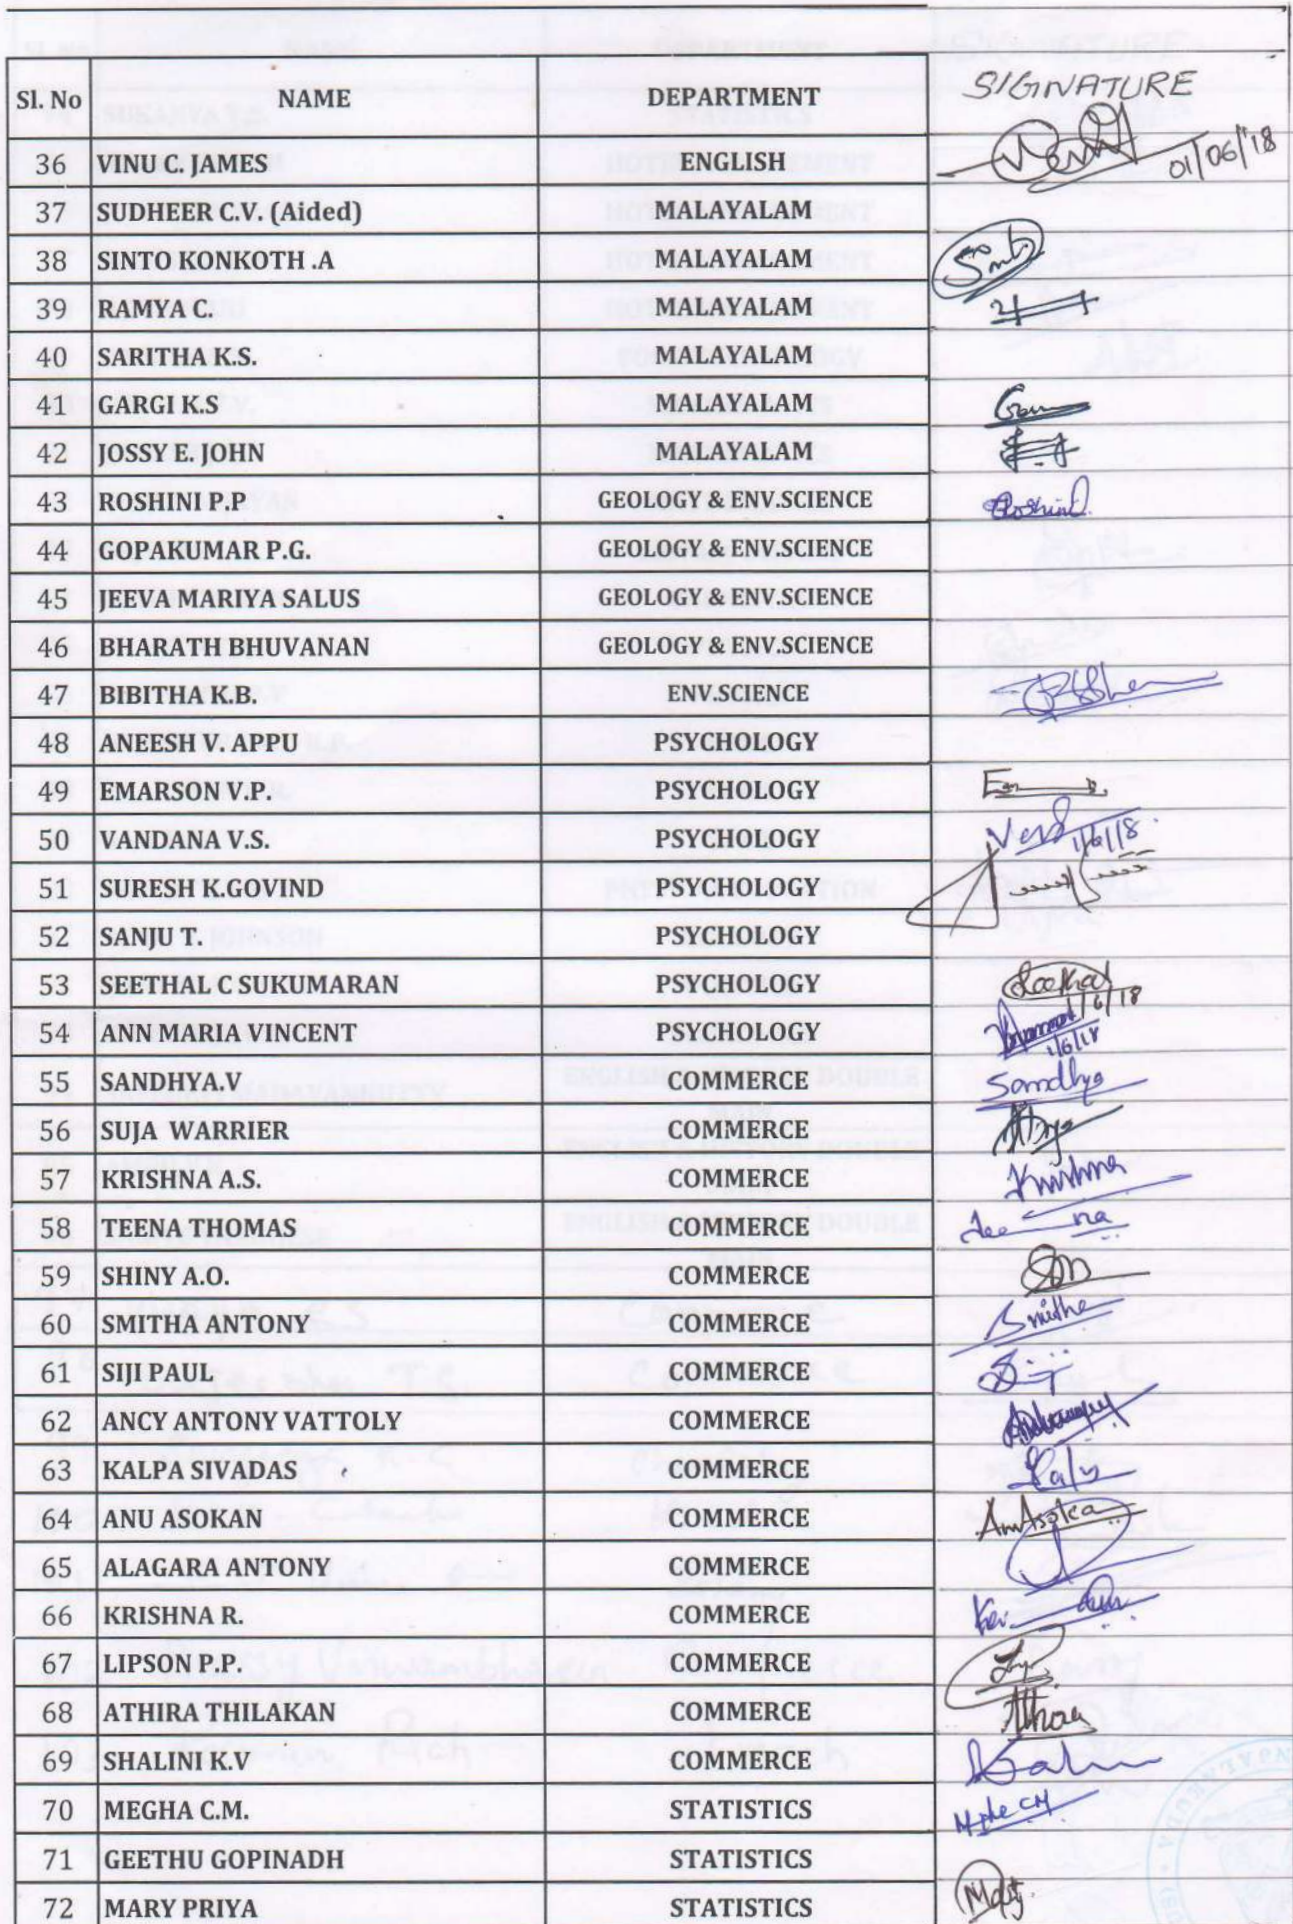 Sl. No NAME DEPARTMENT SIGNATURE
36 VINU C. JAMES ENGLISH 01/06/18
37 SUDHEER C.V. (Aided) MALAYALAM
38 SINTO KONKOTH .A MALAYALAM
39 RAMYA C. MALAYALAM
40 SARITHA K.S. MALAYALAM
41 GARGI K.S MALAYALAM
42 JOSSY E. JOHN MALAYALAM
43 ROSHINI P.P GEOLOGY & ENV.SCIENCE Roshini
44 GOPAKUMAR P.G. GEOLOGY & ENV.SCIENCE
45 JEEVA MARIYA SALUS GEOLOGY & ENV.SCIENCE
46 BHARATH BHUVANAN GEOLOGY & ENV.SCIENCE
47 BIBITHA K.B. ENV.SCIENCE
48 ANEESH V. APPU PSYCHOLOGY
49 EMARSON V.P. PSYCHOLOGY
50 VANDANA V.S. PSYCHOLOGY 1/6/18.
51 SURESH K.GOVIND PSYCHOLOGY
52 SANJU T. PSYCHOLOGY
53 SEETHAL C SUKUMARAN PSYCHOLOGY 1/6/18
54 ANN MARIA VINCENT PSYCHOLOGY 1/6/18
55 SANDHYA.V COMMERCE Sandhya
56 SUJA WARRIER COMMERCE
57 KRISHNA A.S. COMMERCE Krishna
58 TEENA THOMAS COMMERCE Tee na
59 SHINY A.O. COMMERCE
60 SMITHA ANTONY COMMERCE Smitha
61 SIJI PAUL COMMERCE
62 ANCY ANTONY VATTOLY COMMERCE
63 KALPA SIVADAS COMMERCE
64 ANU ASOKAN COMMERCE Anu Asoka
65 ALAGARA ANTONY COMMERCE
66 KRISHNA R. COMMERCE
67 LIPSON P.P. COMMERCE
68 ATHIRA THILAKAN COMMERCE
69 SHALINI K.V COMMERCE
70 MEGHA C.M. STATISTICS
71 GEETHU GOPINADH STATISTICS
72 MARY PRIYA STATISTICS